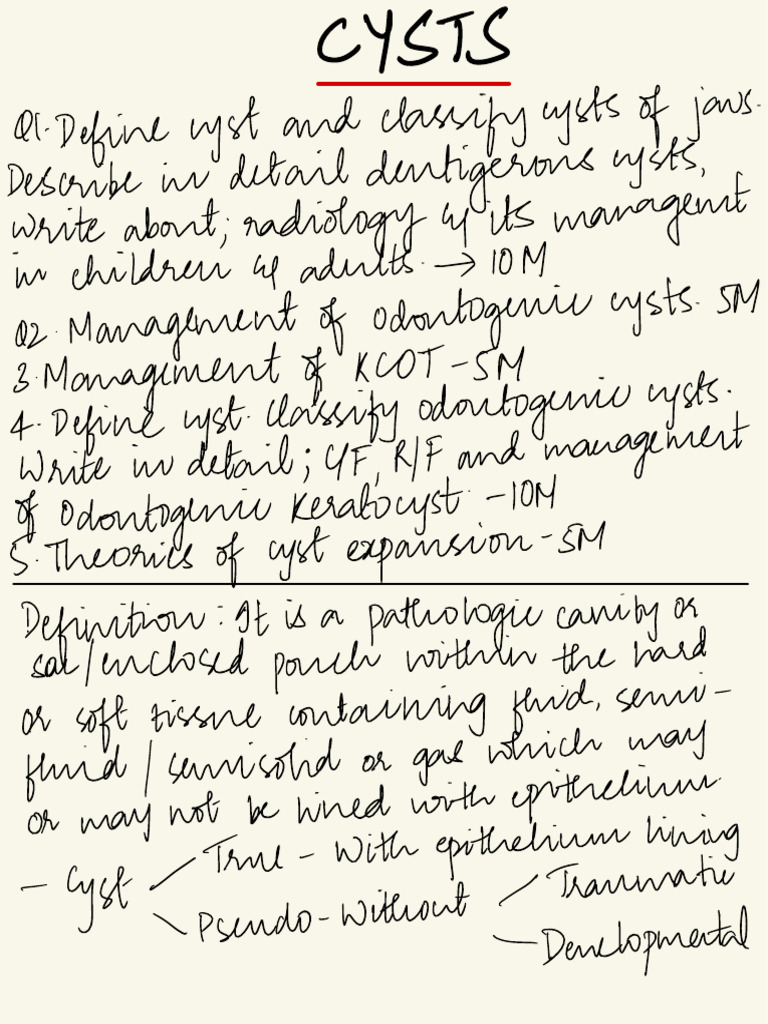 CYSTS
Q1. Define cyst and classify cysts of jaws.
Describe in detail dentigerous cysts,
write about; radiology & its managemnt
in children & adults. → 10M
Q2. Management of odontogenic cysts. 5M
3. Management of KCOT - 5M
4. Define cyst. Classify odontogenic cysts.
Write in detail; C/F, R/F and management
of Odontogenic Keratocyst - 10M
5. Theories of cyst expansion - 5M
Definition: It is a pathologic cavity or
sac/enclosed pouch within the hard
or soft tissue containing fluid, semi-
fluid / semisolid or gas which may
or may not be lined with epithelium.
- Cyst True - With epithelium lining
Pseudo - Without Traumatic
Developmental